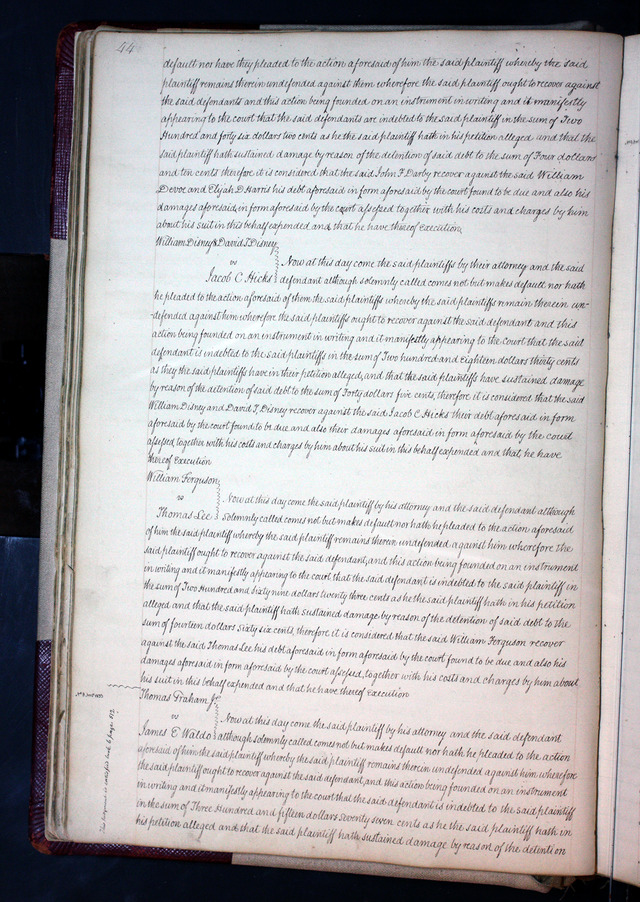 44
default nor have they pleaded to the action aforesaid of him the said plaintiff whereby the said
plaintiff remains therein undefended against them wherefore the said plaintiff ought to recover against
the said defendants and this action being founded on an instrument in writing and it manifestly
appearing to the court that the said defendants are indebted to the said plaintiff in the sum of Two
Hundred and forty six dollars two cents as he the said plaintiff hath in his petition alleged and that the
said plaintiff hath sustained damage by reason of the detention of said debt to the sum of Four dollars
and ten cents therefore it is considered that the said John F. Darby recover against the said William
Devoe and Elijah D. Harris his debt aforesaid in form aforesaid by the court found to be due and also his
damages aforesaid, in form aforesaid by the court assessed together with his costs and charges by him
about his suit in this behalf expended and that he have thereof execution,
William Disney & David T. Disney
vs
Now at this day come the said plaintiffs by their attorney and the said
Jacob C Hicks
defendant although solemnly called comes not but makes default nor hath
he pleaded to the action aforesaid of them the said plaintiffs whereby the said plaintiffs remain therein un-
-defended against him wherefore the said plaintiffs ought to recover against the said defendant and this
action being founded on an instrument in writing and it manifestly appearing to the Court that the said
defendant is indebted to the said plaintiffs in the sum of Two hundred and Eighteen dollars thirty cents
as they the said plaintiffs have in their petition alleged, and that the said plaintiffs have sustained damage
by reason of the detention of said debt to the sum of Forty dollars five cents, therefore it is considered that the said
William Disney and David T. Disney recover against the said Jacob C Hicks their debt aforesaid in form
aforesaid by the court found to be due and also their damages aforesaid in form aforesaid by the court
assessed, together with his costs and charges by him about his suit in this behalf expended and that, he have
thereof execution
William Ferguson
vs
Now at this day come the said plaintiff by his attorney and the said defendant although
Thomas Lee
solemnly called comes not but makes default nor hath he pleaded to the action aforesaid
of him the said plaintiff whereby the said plaintiff remains therein undefended against him wherefore the
said plaintiff ought to recover against the said defendant, and this action being founded on an instrument
in writing and it manifestly appearing to the court that the said defendant is indebted to the said plaintiff in
the sum of Two Hundred and sixty nine dollars twenty three cents as he the said plaintiff hath in his petition
alleged and that the said plaintiff hath sustained damage by reason of the detention of said debt to the
sum of fourteen dollars Sixty six cents, therefore it is considered that the said William Ferguson recover
against the said Thomas Lee his debt aforesaid in form aforesaid by the court found to be due and also his
damages aforesaid in form aforesaid by the court assessed, together with his costs and charges by him about
his suit in this behalf expended and that he have thereof Execution
Thomas Praham Jr
vs
Now at this day come the said plaintiff by his attorney and the said defendant
James E Waldo
although solemnly called comes not but makes default nor hath he pleaded to the action
aforesaid of him the said plaintiff whereby the said plaintiff remains therein undefended against him wherefore
the said plaintiff ought to recover against the said defendant, and this action being founded on an instrument
in writing and it manifestly appearing to the court that the said defendant is indebted to the said plaintiff
in the sum of Three Hundred and fifteen dollars Seventy seven cents as he the said plaintiff hath in
his petition alleged and that the said plaintiff hath sustained damage by reason of the detention
This judgment is satisfied